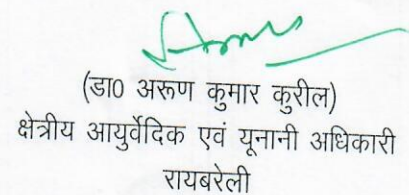 (डा0 अरूण कुमार कुरील)
क्षेत्रीय आयुर्वेदिक एवं यूनानी अधिकारी
रायबरेली